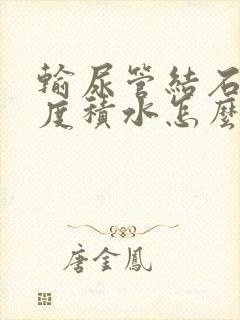 輸尿管結石
度積水怎麼
唐金鳳